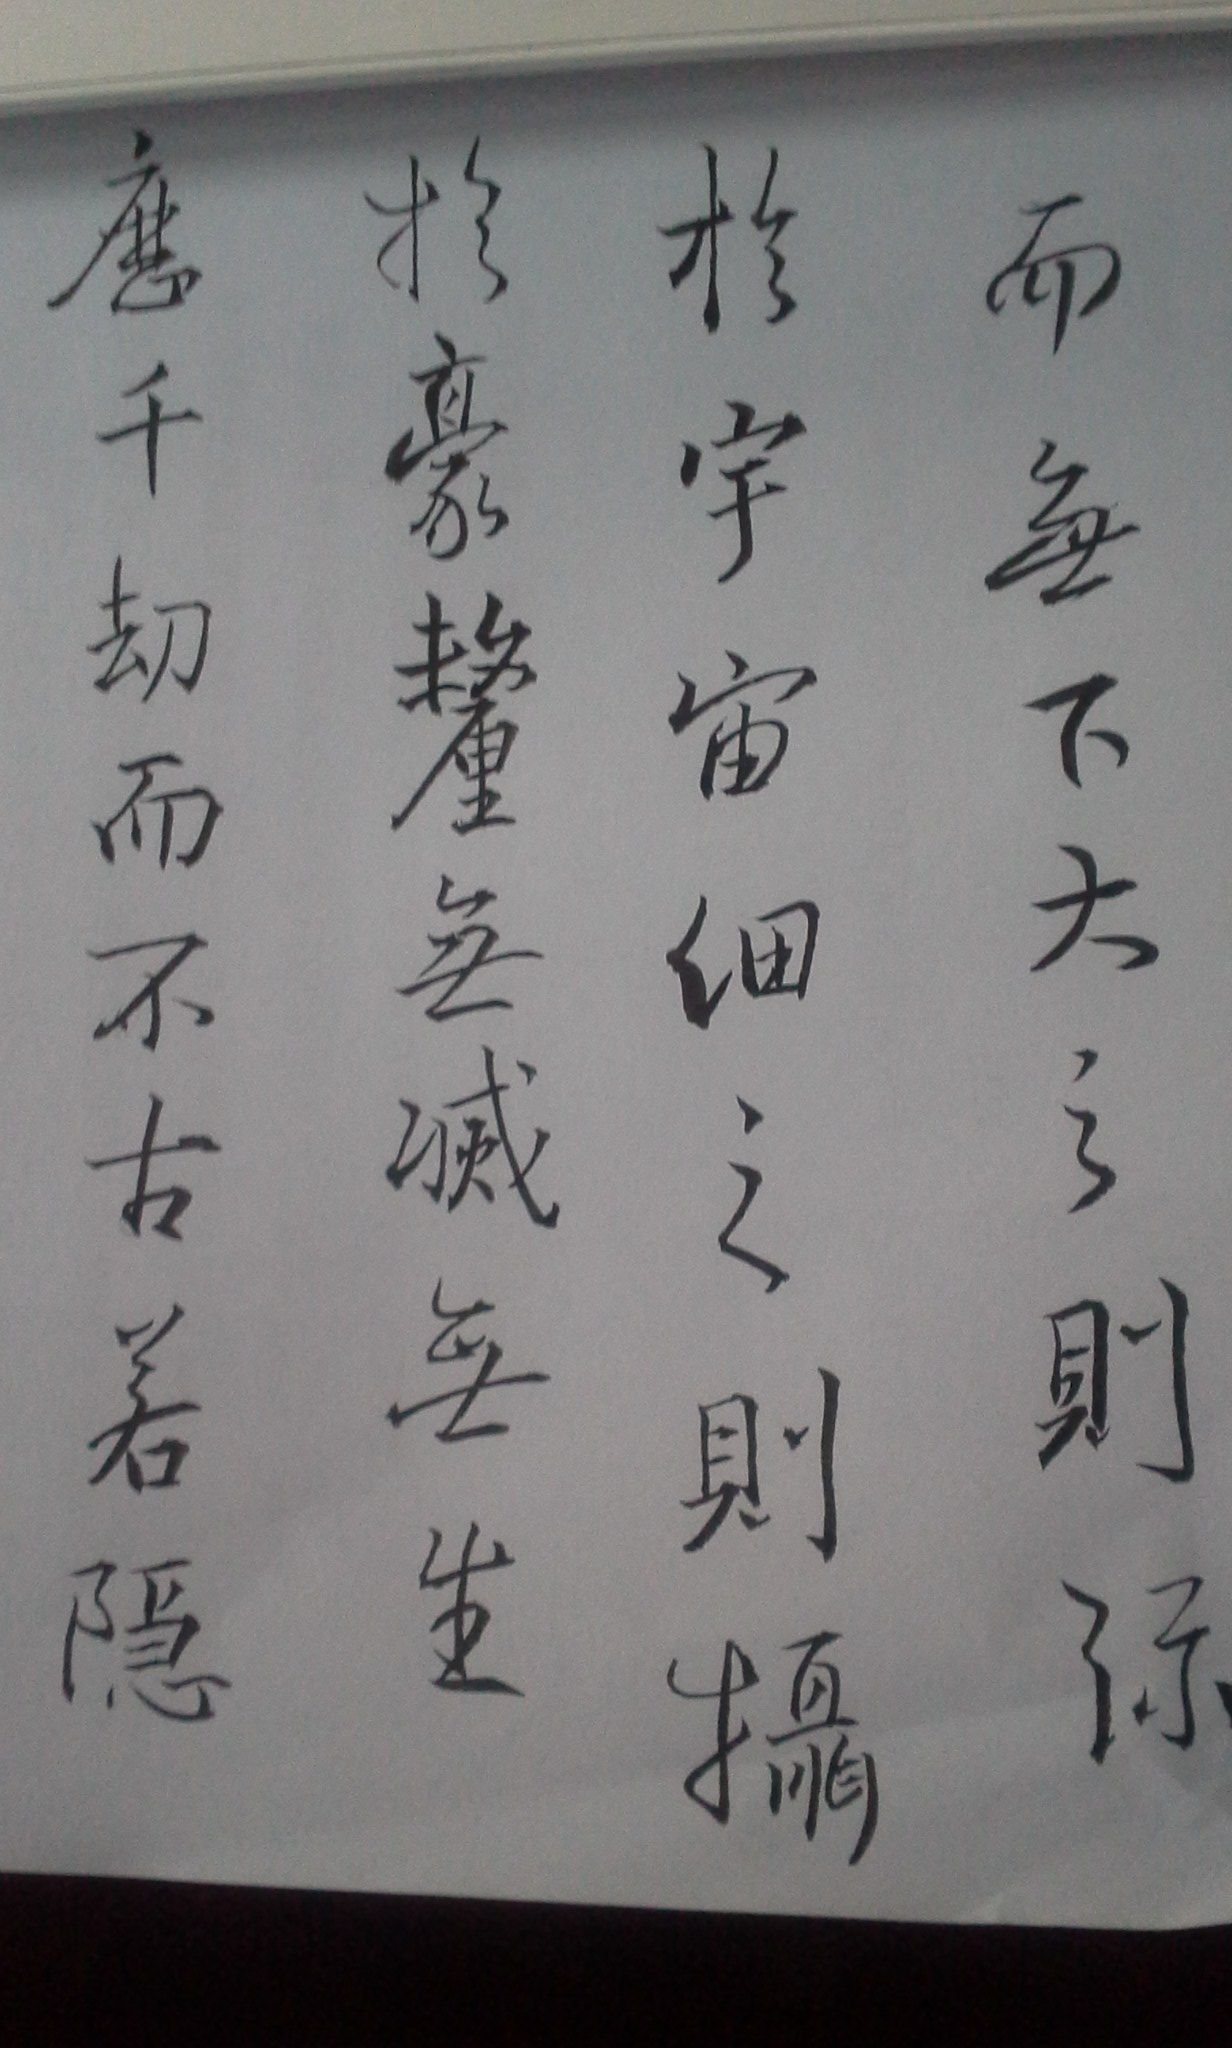 而無下大之則弥
於宇宙細之則攝
於豪釐無滅無生
歷千劫而不古若隱